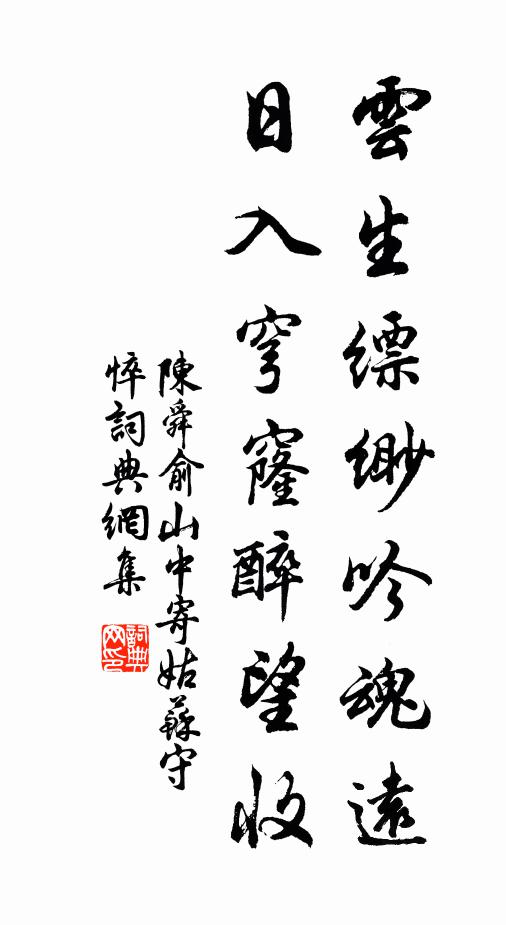 雲生縹緲吟魂遠
日入穹窿醉望收
陳舜俞山中寄姑蘇守
悴詞典網集
詞典網印